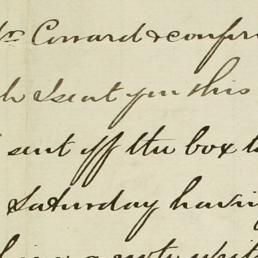 Mr Conrard & confir
h I sent you this
sent off the box to
Saturday having